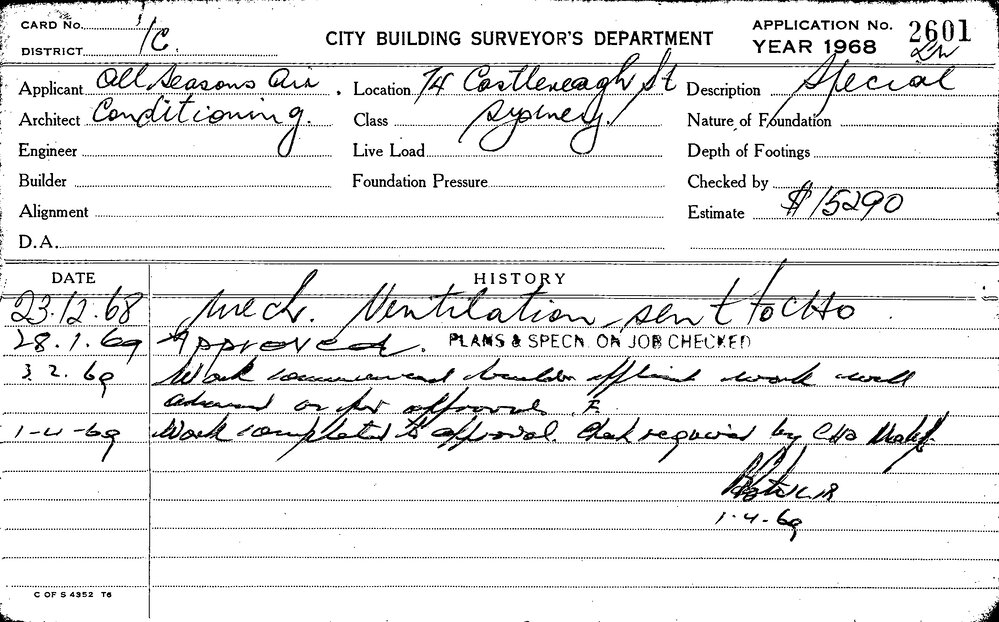 CARD No. 1/C.
DISTRICT
CITY BUILDING SURVEYOR'S DEPARTMENT
APPLICATION No. 2601
YEAR 1968
Applicant All Seasons Air . Location 74 Castlereagh St Description Special
Architect Conditioning. Class Sydney. Nature of Foundation
Engineer Live Load Depth of Footings
Builder Foundation Pressure Checked by
Alignment Estimate $15290
D.A.
DATE HISTORY
23.12.68 Mech. Ventilation sent to CHO
28.1.69 Approved. PLANS & SPECN. ON JOB CHECKED
3.2.69 Work commenced builder work well
as per approval
1-4-69 Work completed to approval. Check required by CHO
1-4-69
C OF S 4352 T6